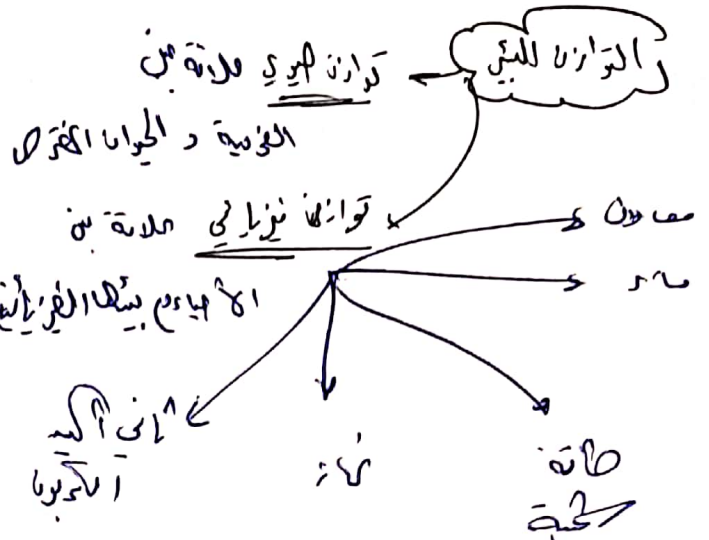 التوازن البيئي
توازن حيوي علاقة بين
الفريسة و الحيوان المفترس
توازن فيزيائي علاقة بين
الأحياء و بيئتها الفيزيائية
معادن
ماء
طاقة
شمسية
غاز
ثاني أكسيد
الكربون